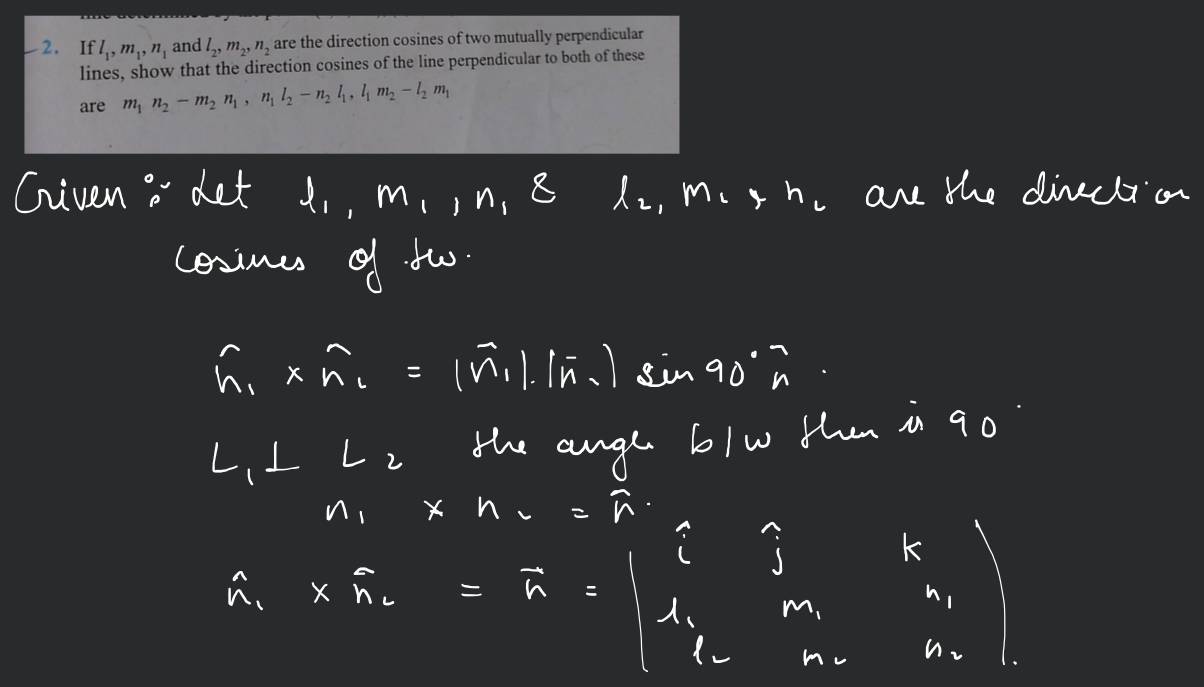 2. If l₁, m₁, n₁ and l₂, m₂, n₂ are the direction cosines of two mutually perpendicular
lines, show that the direction cosines of the line perpendicular to both of these
are m₁ n₂ − m₂ n₁ , n₁ l₂ − n₂ l₁ , l₁ m₂ − l₂ m₁
Given :- Let l₁, m₁, n₁ & l₂, m₂, n₂ are the direction
cosines of tw.
n̂₁ × n̂₂ = |n̄₁|.|n̄₂| sin 90° n̂ .
L₁ ⊥ L₂ the angle b/w then is 90°
n₁ × n₂ = n̂.
n̂₁ × n̂₂ = n̄ = | î ĵ k
l₁ m₁ n₁
l₂ m₂ n₂ |.